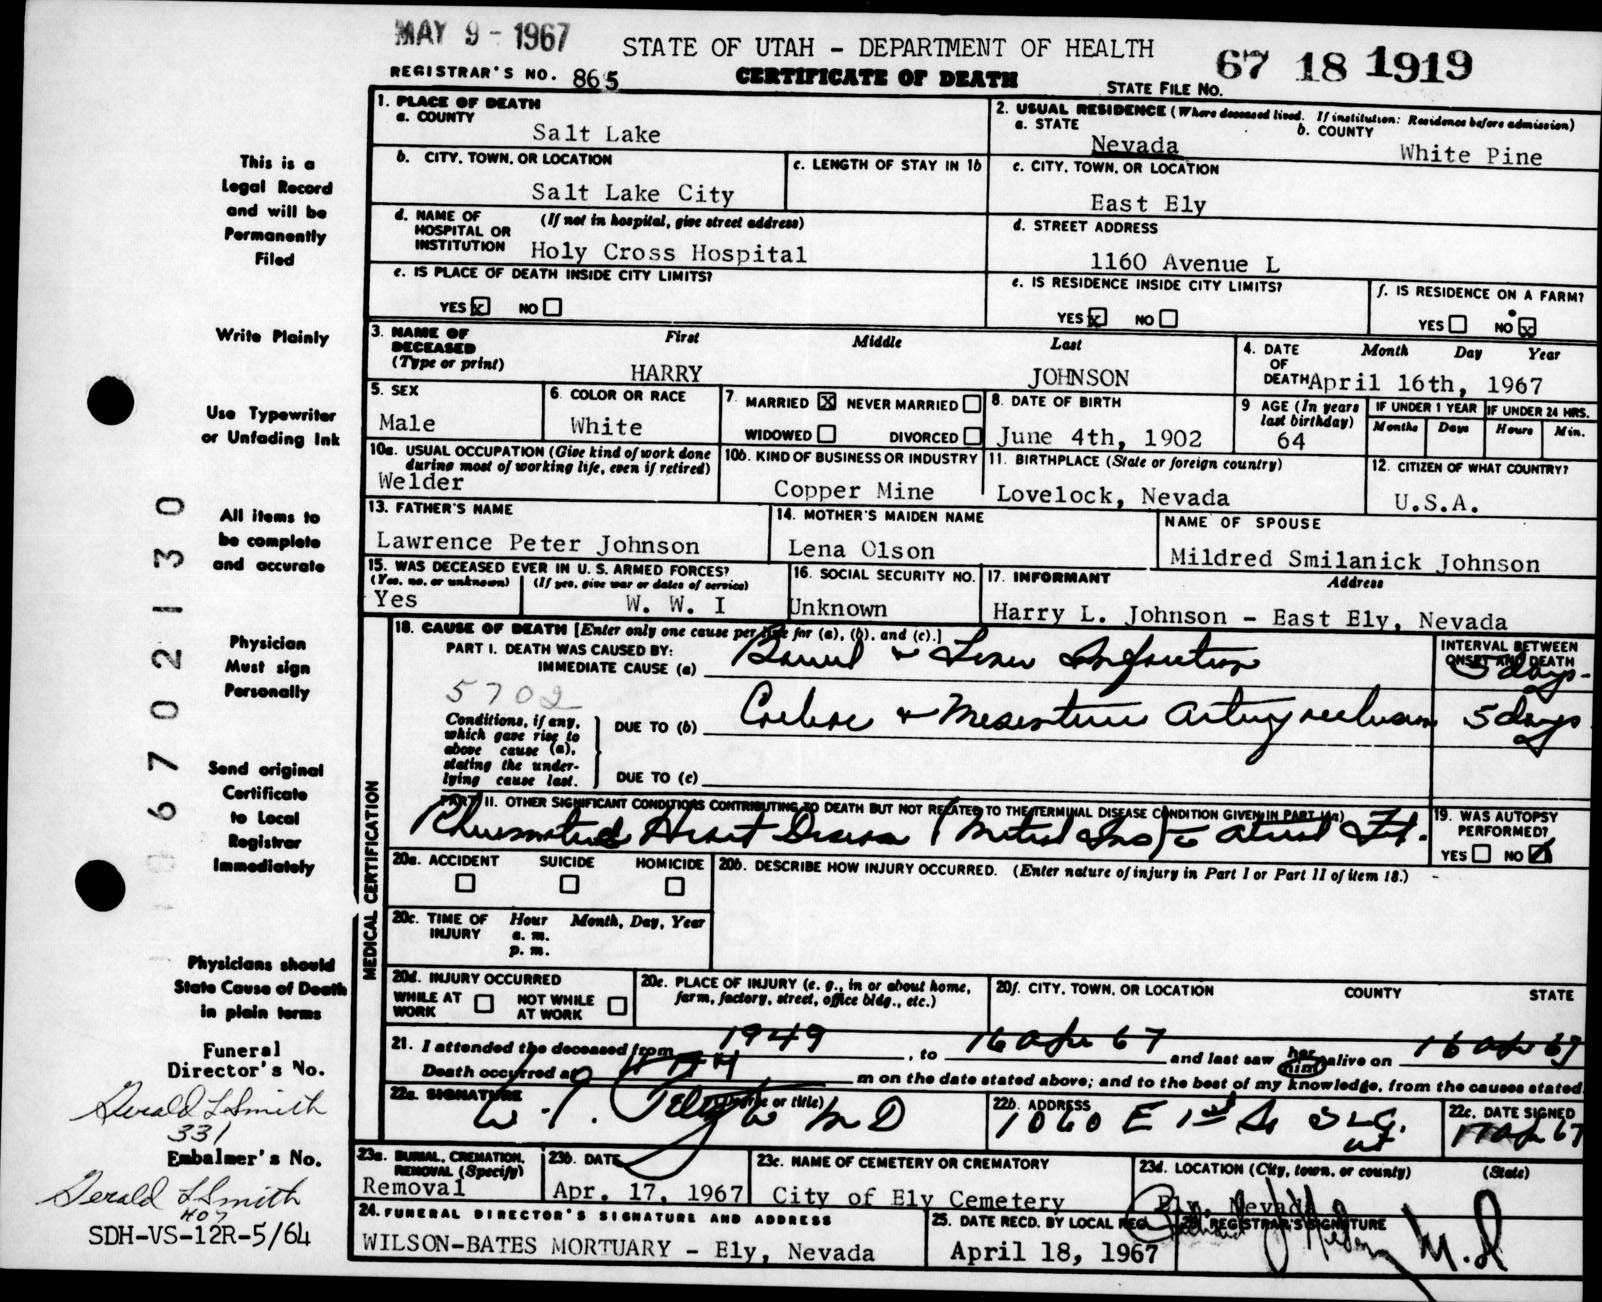 MAY 9 - 1967
STATE OF UTAH - DEPARTMENT OF HEALTH
67 18 1919
REGISTRAR'S NO. 865
CERTIFICATE OF DEATH
STATE FILE NO.
1. PLACE OF DEATH
a. COUNTY
Salt Lake
2. USUAL RESIDENCE (Where deceased lived. If institution: Residence before admission)
a. STATE
Nevada
b. COUNTY
White Pine
b. CITY, TOWN, OR LOCATION
Salt Lake City
c. LENGTH OF STAY IN 1b
c. CITY, TOWN, OR LOCATION
East Ely
d. NAME OF HOSPITAL OR INSTITUTION
(If not in hospital, give street address)
Holy Cross Hospital
d. STREET ADDRESS
1160 Avenue L
e. IS PLACE OF DEATH INSIDE CITY LIMITS?
YES x NO
e. IS RESIDENCE INSIDE CITY LIMITS?
YES x NO
f. IS RESIDENCE ON A FARM?
YES NO x
3. NAME OF DECEASED
(Type or print)
First Middle Last
HARRY JOHNSON
4. DATE OF DEATH
Month Day Year
April 16th, 1967
5. SEX
Male
6. COLOR OR RACE
White
7. MARRIED x NEVER MARRIED
WIDOWED DIVORCED
8. DATE OF BIRTH
June 4th, 1902
9 AGE (In years last birthday)
64
IF UNDER 1 YEAR
Months Days
IF UNDER 24 HRS.
Hours Min.
10a. USUAL OCCUPATION (Give kind of work done during most of working life, even if retired)
Welder
10b. KIND OF BUSINESS OR INDUSTRY
Copper Mine
11. BIRTHPLACE (State or foreign country)
Lovelock, Nevada
12. CITIZEN OF WHAT COUNTRY?
U.S.A.
13. FATHER'S NAME
Lawrence Peter Johnson
14. MOTHER'S MAIDEN NAME
Lena Olson
NAME OF SPOUSE
Mildred Smilanick Johnson
15. WAS DECEASED EVER IN U. S. ARMED FORCES?
(Yes, no, or unknown) (If yes, give war or dates of service)
Yes W. W. I
16. SOCIAL SECURITY NO.
Unknown
17. INFORMANT Address
Harry L. Johnson - East Ely, Nevada
MEDICAL CERTIFICATION
18. CAUSE OF DEATH [Enter only one cause per line for (a), (b), and (c).]
PART I. DEATH WAS CAUSED BY:
IMMEDIATE CAUSE (a) Bowel + Liver Infarction
INTERVAL BETWEEN ONSET AND DEATH
5 days-
5702
Conditions, if any, which gave rise to above cause (a), stating the underlying cause last.
DUE TO (b) Celiac + Mesenteric artery occlusion 5 days
DUE TO (c)
PART II. OTHER SIGNIFICANT CONDITIONS CONTRIBUTING TO DEATH BUT NOT RELATED TO THE TERMINAL DISEASE CONDITION GIVEN IN PART I(a)
Rheumatic Heart Disease (Mitral Ins) c̄ atrial Fib.
19. WAS AUTOPSY PERFORMED?
YES NO
20a. ACCIDENT SUICIDE HOMICIDE
20b. DESCRIBE HOW INJURY OCCURRED. (Enter nature of injury in Part I or Part II of item 18.)
20c. TIME OF INJURY Hour a. m. p. m. Month, Day, Year
20d. INJURY OCCURRED
WHILE AT WORK NOT WHILE AT WORK
20e. PLACE OF INJURY (e. g., in or about home, farm, factory, street, office bldg., etc.)
20f. CITY, TOWN, OR LOCATION COUNTY STATE
21. I attended the deceased from 1949, to 16 Apr 67 and last saw her him alive on 16 Apr 67
Death occurred at m on the date stated above; and to the best of my knowledge, from the causes stated.
22a. SIGNATURE (Degree or title)
M D
22b. ADDRESS
1060 E 1st So SLC. Ut
22c. DATE SIGNED
17 Apr 67
23a. BURIAL, CREMATION, REMOVAL (Specify)
Removal
23b. DATE
Apr. 17, 1967
23c. NAME OF CEMETERY OR CREMATORY
City of Ely Cemetery
23d. LOCATION (City, town, or county) (State)
Ely, Nevada
24. FUNERAL DIRECTOR'S SIGNATURE AND ADDRESS
WILSON-BATES MORTUARY - Ely, Nevada
25. DATE RECD. BY LOCAL REG.
April 18, 1967
26. REGISTRAR'S SIGNATURE
M.D
This is a
Legal Record
and will be
Permanently
Filed
Write Plainly
Use Typewriter
or Unfading Ink
All items to
be complete
and accurate
Physician
Must sign
Personally
Send original
Certificate
to Local
Registrar
Immediately
Physicians should
State Cause of Death
in plain terms
6702130
Funeral
Director's No.
Gerald L Smith
331
Embalmer's No.
Gerald L Smith
407
SDH-VS-12R-5/64